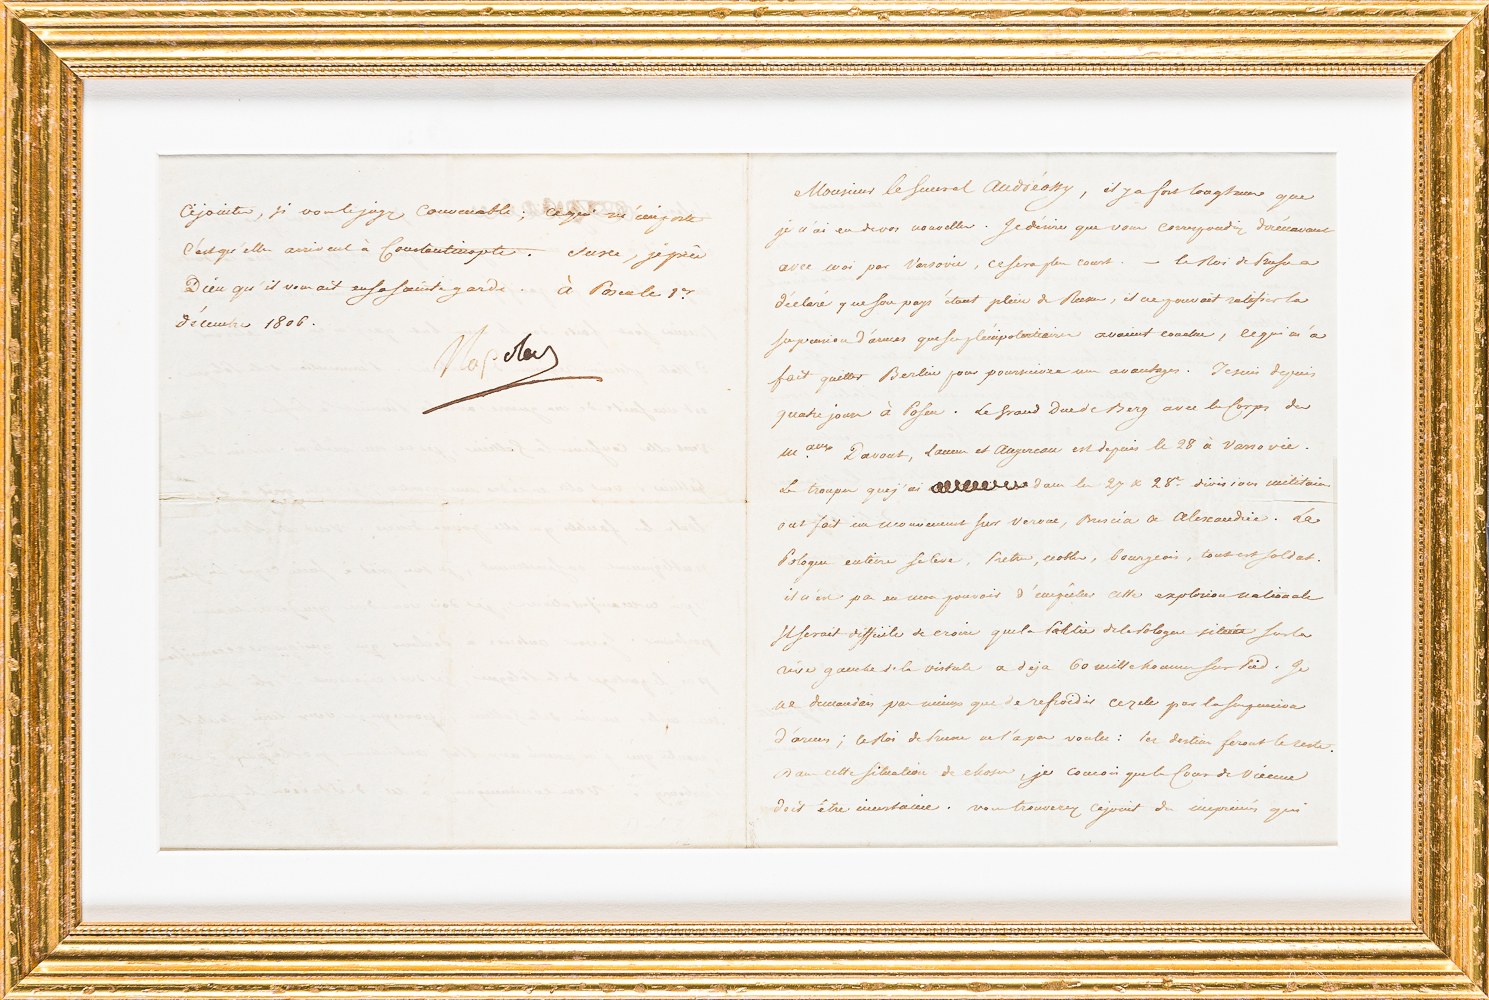 Monsieur le Général Andréossy, il y a fort longtems que
je n'ai eu de vos nouvelles. Je désire que vous correspondiez dorénavant
avec moi par Varsovie, ce sera plus court. — le Roi de Prusse a
déclaré que son pays étant plein de Russes, il ne pouvait ratifier la
suspension d'armes que ses plénipotentiaires avaient conclue, ce qui m'a
fait quitter Berlin pour poursuivre mes avantages. Je suis depuis
quatre jours à Posen. Le Grand Duc de Berg avec les Corps des
M.aux Davout, Lannes et Augereau est depuis le 28 à Varsovie.
Les troupes que j'ai dans les 27 & 28e divisions militaires
ont fait un mouvement sur Verone, Brescia & Alexandrie. La
Pologne entière se lève, Prêtres, nobles, bourgeois, tout est soldat.
il n'est pas en mon pouvoir d'empêcher cette explosion nationale
Il serait difficile de croire que la Partie de la Pologne située sur la
rive gauche de la vistule a déja 60 mille hommes sur Pied. Je
ne demandais pas mieux que de refroidir ce zele par la suspension
d'armes; le Roi de Prusse ne l'a pas voulu: les destins feront le reste.
Dans cette situation de choses, je conçois que la Cour de Vienne
doit être incertaine. vous trouverez cijoint des imprimés qui
cijointes, si vous le jugez convenable: ce qui m'importe
c'est qu'elles arrivent à Constantinople. Sur ce, je prie
Dieu qu'il vous ait en sa sainte garde. à Posen le 1er
décembre 1806.
Napoleon